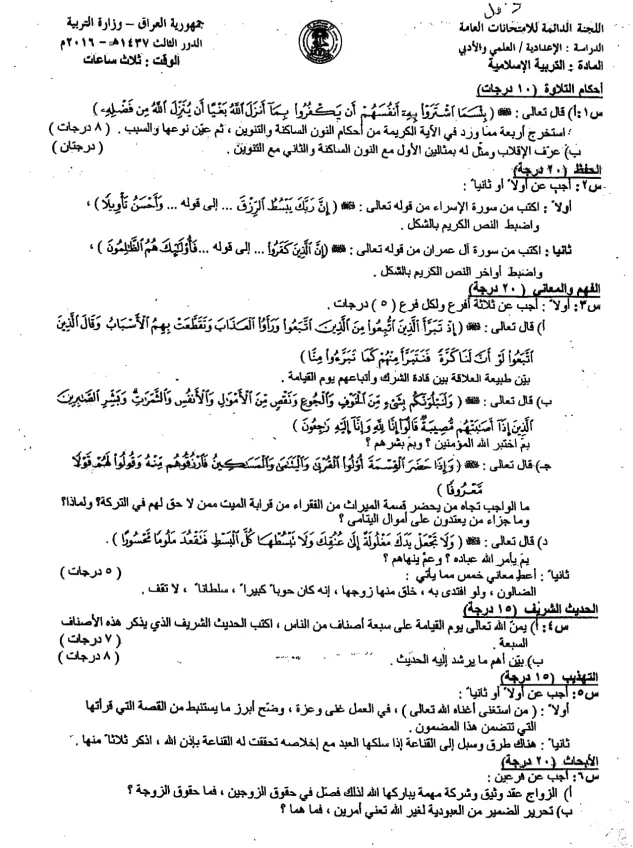 اللجنة الدائمة للامتحانات العامة
الدراسة : الإعدادية / العلمي والأدبي
المادة : التربية الإسلامية
جمهورية العراق - وزارة التربية
الدور الثالث ١٤٣٧هـ - ٢٠١٦م
الوقت : ثلاث ساعات
أحكام التلاوة (١٠ درجات)
س١: أ) قال تعالى : ﴿ بِئْسَمَا اشْتَرَوْا بِهِ أَنفُسَهُمْ أَن يَكْفُرُوا بِمَا أَنزَلَ اللَّهُ بَغْيًا أَن يُنَزِّلَ اللَّهُ مِن فَضْلِهِ ﴾
استخرج أربعة مما ورد في الآية الكريمة من أحكام النون الساكنة والتنوين ، ثم عيّن نوعها والسبب . ( ٨ درجات )
ب) عرّف الإقلاب ومثّل له بمثالين الأول مع النون الساكنة والثاني مع التنوين . ( درجتان )
الحفظ (٢٠ درجة)
س٢: أجب عن أولاً أو ثانياً :
أولاً : اكتب من سورة الإسراء من قوله تعالى : ( إِنَّ رَبَّكَ يَبْسُطُ الرِّزْقَ ... إلى قوله ... وَأَحْسَنُ تَأْوِيلًا ) ،
واضبط النص الكريم بالشكل .
ثانياً : اكتب من سورة آل عمران من قوله تعالى : (إِنَّ الَّذِينَ كَفَرُوا ... إلى قوله ... فَأُولَٰئِكَ هُمُ الظَّالِمُونَ ) ،
واضبط أواخر النص الكريم بالشكل .
الفهم والمعاني (٢٠ درجة)
س٣: أولاً : أجب عن ثلاثة أفرع ولكل فرع ( ٥ ) درجات .
أ) قال تعالى : ( إِذْ تَبَرَّأَ الَّذِينَ اتُّبِعُوا مِنَ الَّذِينَ اتَّبَعُوا وَرَأَوُا الْعَذَابَ وَتَقَطَّعَتْ بِهِمُ الْأَسْبَابُ وَقَالَ الَّذِينَ
اتَّبَعُوا لَوْ أَنَّ لَنَا كَرَّةً فَنَتَبَرَّأَ مِنْهُمْ كَمَا تَبَرَّءُوا مِنَّا )
بيّن طبيعة العلاقة بين قادة الشرك وأتباعهم يوم القيامة .
ب) قال تعالى : ( وَلَنَبْلُوَنَّكُم بِشَيْءٍ مِّنَ الْخَوْفِ وَالْجُوعِ وَنَقْصٍ مِّنَ الْأَمْوَالِ وَالْأَنفُسِ وَالثَّمَرَاتِ وَبَشِّرِ الصَّابِرِينَ
الَّذِينَ إِذَا أَصَابَتْهُم مُّصِيبَةٌ قَالُوا إِنَّا لِلَّهِ وَإِنَّا إِلَيْهِ رَاجِعُونَ )
بمَ اختبر الله المؤمنين ؟ وبمَ بشرهم ؟
جـ) قال تعالى : ( وَإِذَا حَضَرَ الْقِسْمَةَ أُولُوا الْقُرْبَىٰ وَالْيَتَامَىٰ وَالْمَسَاكِينُ فَارْزُقُوهُم مِّنْهُ وَقُولُوا لَهُمْ قَوْلًا
مَّعْرُوفًا )
ما الواجب تجاه من يحضر قسمة الميراث من الفقراء من قرابة الميت ممن لا حق لهم في التركة؟ ولماذا؟
وما جزاء من يعتدون على أموال اليتامى ؟
د) قال تعالى : ( وَلَا تَجْعَلْ يَدَكَ مَغْلُولَةً إِلَىٰ عُنُقِكَ وَلَا تَبْسُطْهَا كُلَّ الْبَسْطِ فَتَقْعُدَ مَلُومًا مَّحْسُورًا ) .
بمَ يأمر الله عباده ؟ وعمَّ ينهاهم ؟
ثانياً : أعطِ معاني خمس مما يأتي : ( ٥ درجات )
الضالون ، ولو افتدى به ، خلق منها زوجها ، إنه كان حوباً كبيراً ، سلطاناً ، لا تقف .
الحديث الشريف (١٥ درجة)
س٤: أ) يمنّ الله تعالى يوم القيامة على سبعة أصناف من الناس ، اكتب الحديث الشريف الذي يذكر هذه الأصناف
السبعة . ( ٧ درجات )
ب) بيّن أهم ما يرشد إليه الحديث. ( ٨ درجات )
التهذيب (١٥ درجة)
س٥: أجب عن أولاً أو ثانياً :
أولاً : ( من استغنى أغناه الله تعالى ) ، في العمل غنى وعزة ، وضّح أبرز ما يستنبط من القصة التي قرأتها
التي تتضمن هذا المضمون .
ثانياً : هناك طرق وسبل إلى القناعة إذا سلكها العبد مع إخلاصه تحققت له القناعة بإذن الله ، اذكر ثلاثاً منها .
الأبحاث (٢٠ درجة)
س٦: أجب عن فرعين :
أ) الزواج عقد وثيق وشركة مهمة يباركها الله لذلك فصّل في حقوق الزوجين ، فما حقوق الزوجة ؟
ب) تحرير الضمير من العبودية لغير الله تعني أمرين ، فما هما ؟